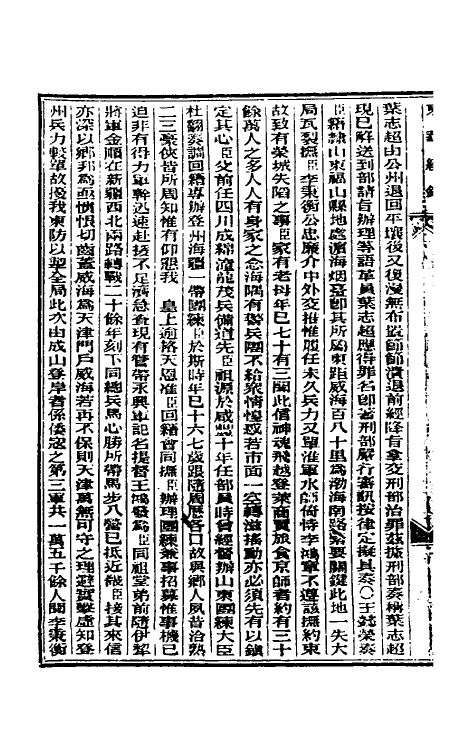 葉志超由公州退回平壤後又復漫無布置節節潰退前經降旨拿交刑部治罪茲據刑部奏稱葉志超
現已解送到部請旨辦理等語革員葉志超應得罪名卽著刑部嚴行審訊按律定擬具奏○王懿榮奏
臣籍隸山東福山縣地處濱海烟臺卽其所屬東距威海百八十里爲渤海南路緊要關鍵此地一失大
局瓦裂撫臣李秉衡公忠廉介中外交推惟履任未久兵力又單淮軍水師倚恃李鴻章不遵該撫約束
故致有榮城失陷之事臣家有老母年已七十有三聞此信神魂飛越登萊商賈旅食京師者約有三十
餘萬人之多人人有身家之念海隅有製兵團不給衆情惶惑若市面一空轉滋搖動亦必須先有以鎭
定其心臣父前任四川成綿龍茂兵備道先臣祖源於咸豐十年任部員時曾經督辦山東團練大臣
杜翮奏調回籍專辦登州海疆一帶團練臣於斯時年已十六七歲跟隨周歷各口故與鄉人夙昔洽熟
二三豪俠皆所周知惟有仰懇我 皇上逾格天恩准臣回籍會同撫臣辦理團練兼事招募惟事機已
迫非有得力軍幹迅速赴援不足濟急查現有管帶永興軍記名提督王鴻發爲臣同祖堂弟前隨伊犁
將軍金順在新疆西北兩路轉戰二十餘年刻下同總兵馬心勝所帶馬步八營已抵近畿臣接其來信
亦深以鄉邦爲虛憤恨切齒蓋威海爲天津門戶威海若再不保則天津萬無可守之理避實擊虛知登
州兵力較單故擾我東防以掣全局此次由成山登岸者係倭寇之第三軍共一萬五千餘人聞李秉衡